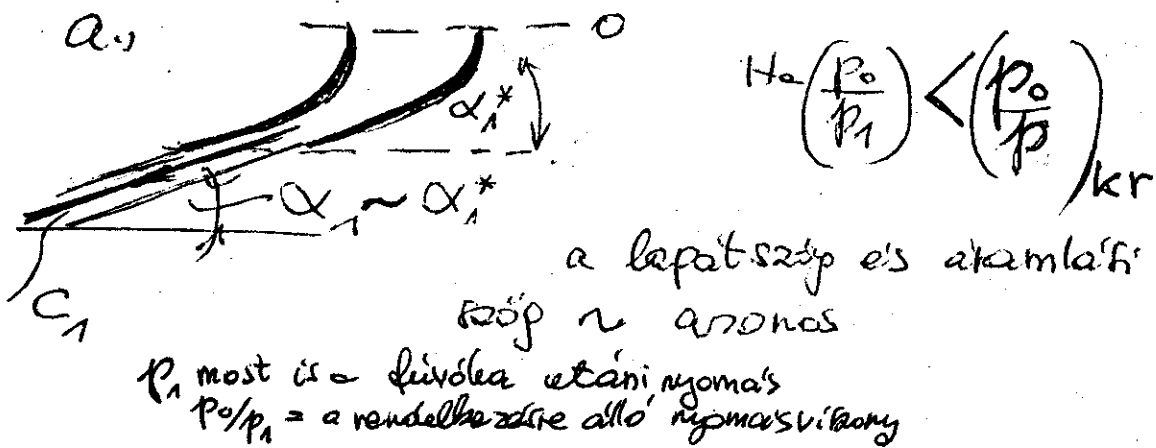 a.,
0
α₁*
Ha (p₀/p₁) < (p₀/p)kr
α₁ ~ α₁*
C₁
a lapátszög és áramlási
szög ~ azonos
p₁ most is a fúvóka utáni nyomás
p₀/p₁ = a rendelkezésre álló nyomásviszony